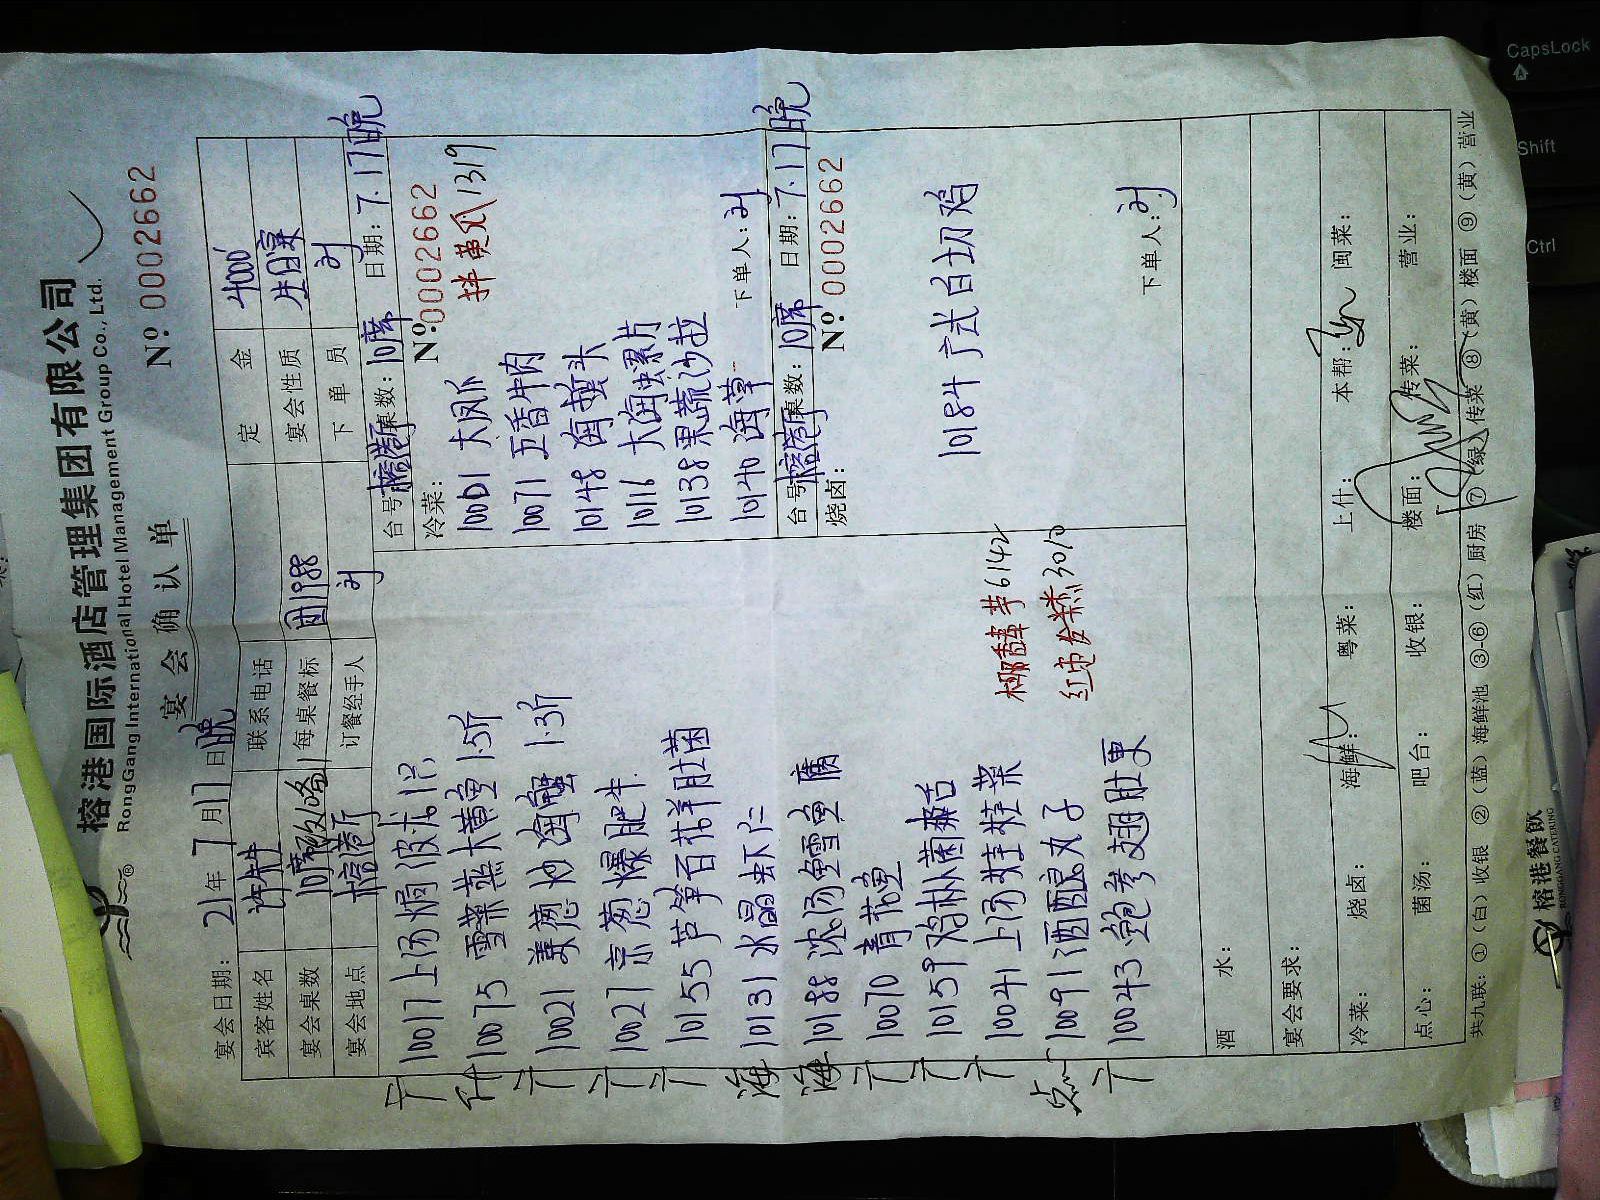 榕港国际酒店管理集团有限公司
RongGang International Hotel Management Group Co., Ltd.
宴会确认单
Nº 0002662
宴会日期: 21年 7月17日晚
宾客姓名 许先生 联系电话 定金 4000
宴会桌数 10席 每桌餐标 1988 宴会性质 生日宴
宴会地点 榕港厅 订餐经手人 刘 下单员 刘
10017 上汤焗波龙 1只
10075 雪菜蒸大黄鱼 1.5斤
10021 姜葱炒海蟹 1.3斤
10027 京葱爆肥牛
10155 芦笋百花羊肚菌
10131 水晶虾仁
10188 浓汤鳕鱼腐
10070 青花鱼
10159
10041 上汤娃娃菜
10091 酒酿丸子
10043 鲍参翅肚更
6142
红枣发糕 3010
广
广
广
广
海
海
广
广
广
点
广
台号 榕港厅 桌数: 10席 日期: 7.17晚
冷菜: Nº 0002662
拌黄瓜 1319
10001
10071 五香牛肉
10148 海蜇头
10116 大海螺片
10138 果蔬沙拉
10140 海草
下单人: 刘
台号 榕港厅 桌数: 10席 日期: 7.17晚
烧卤: Nº 0002662
10184 广式白切鸡
下单人: 刘
酒水:
宴会要求:
冷菜: 烧卤: 海鲜: 粤菜: 上什: 本帮: 闽菜:
点心: 菌汤: 吧台: 收银: 楼面: 传菜: 营业:
共九联: ①(白)收银 ②(蓝)海鲜池 ③-⑥(红)厨房 ⑦(绿)传菜 ⑧(黄)楼面 ⑨(黄)营业
榕港餐飲
RONGGANG CATERING
CapsLock
Shift
Ctrl